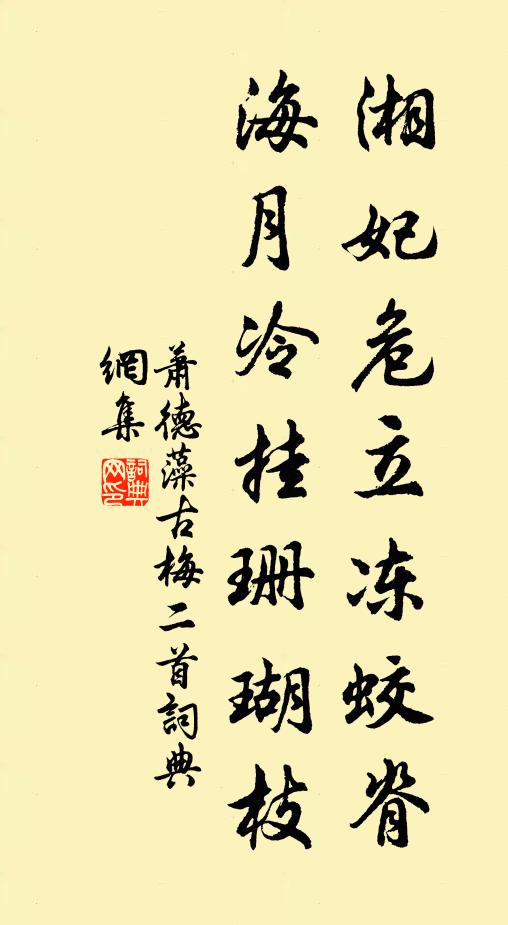 湘妃危立冻蛟脊
海月冷挂珊瑚枝
萧德藻古梅二首詞典
網集
詞典
网印